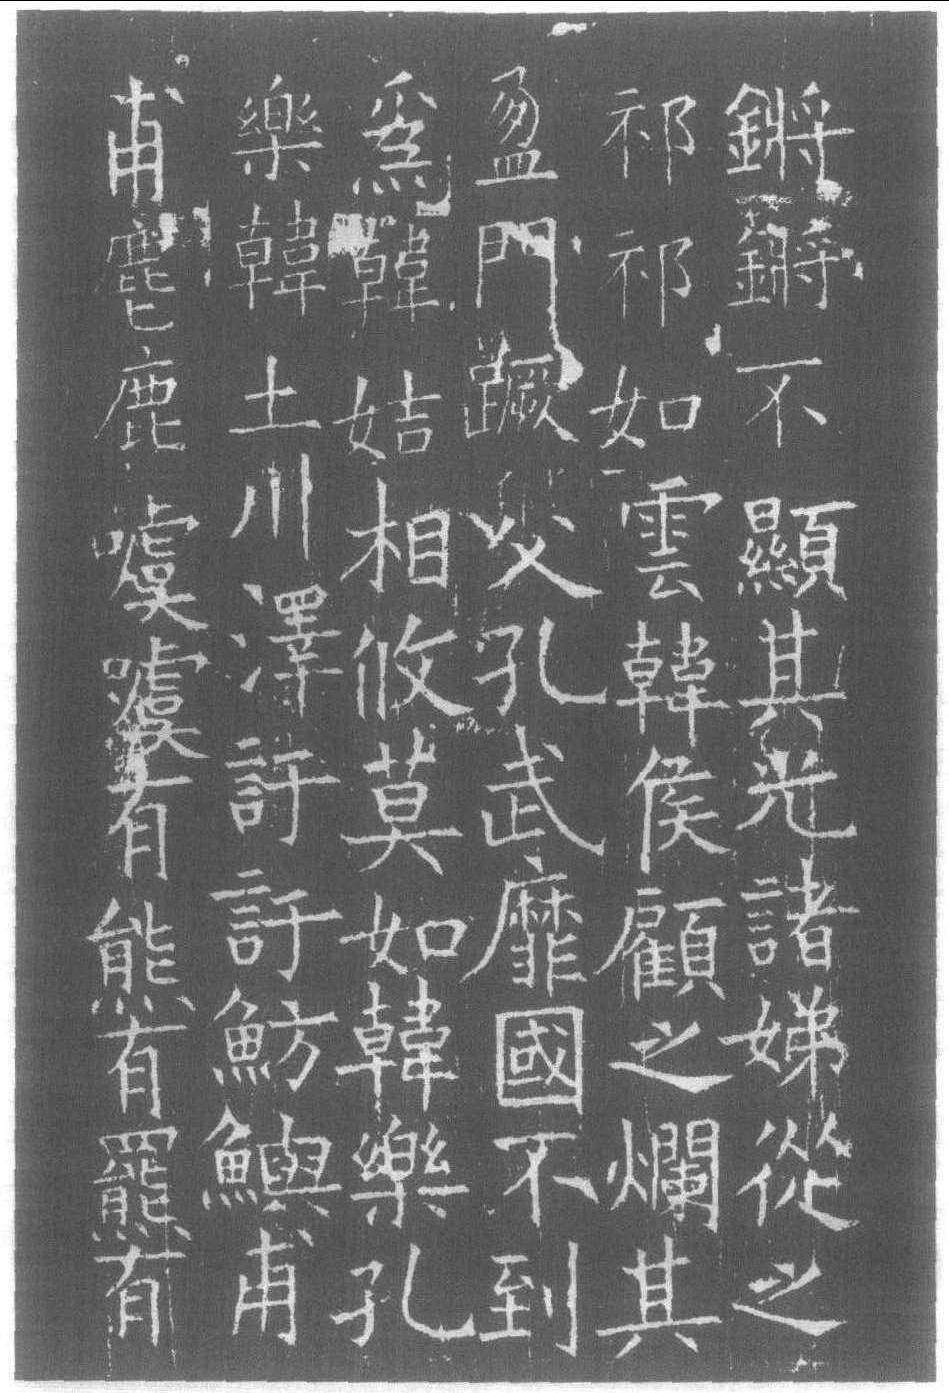 鏘鏘不顯其光諸娣從之
祁祁如雲韓侯顧之爛其
盈門蹶父孔武靡國不到
爲韓姞相攸莫如韓樂孔
樂韓土川澤訏訏魴鱮甫
甫麀鹿噳噳有熊有羆有